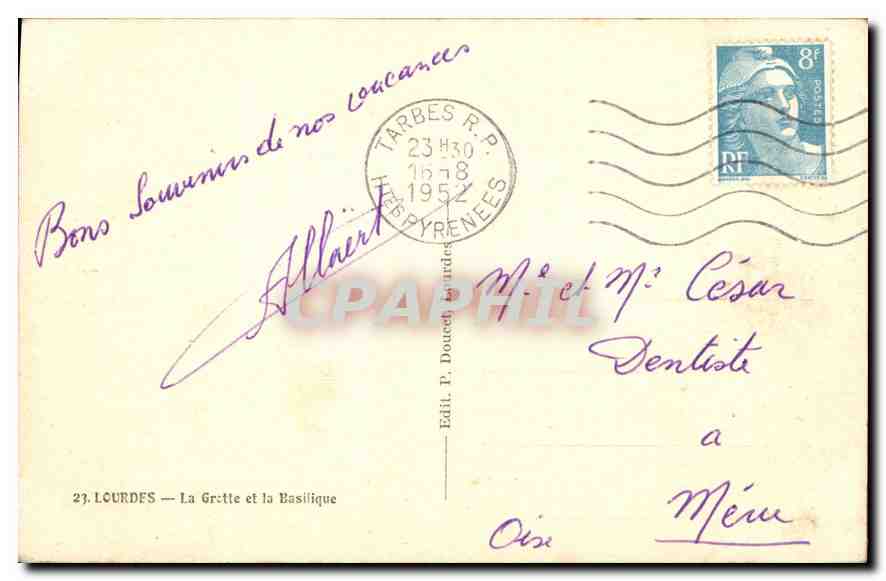 Bons Souvenirs de nos vacances
Allaërt
TARBES R.P.
23H30
16-8
1952
HTES PYRENEES
8F
POSTES
RF
Edit. P. Doucet, Lourdes
CPAPHIL
Me et Mr César
Dentiste
a
Méru
Oise
23. LOURDES — La Grotte et la Basilique